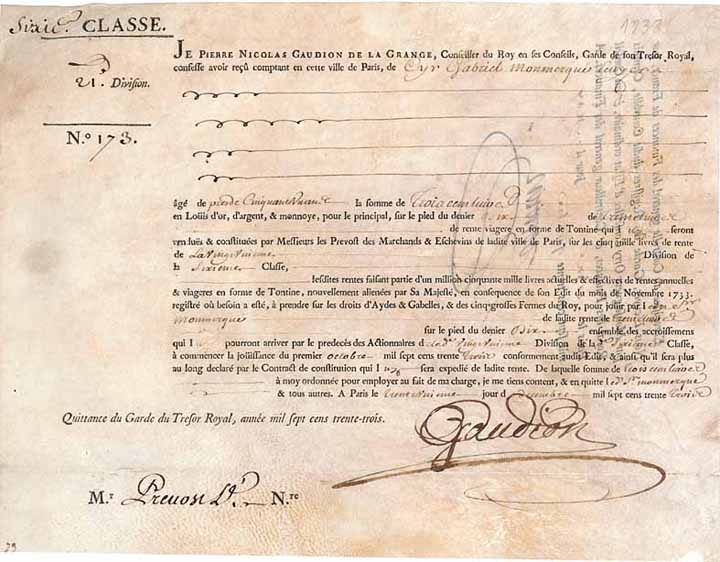 Sixie. CLASSE.
1733
JE PIERRE NICOLAS GAUDION DE LA GRANGE, Conseiller du Roy en ses Conseils, Garde de son Tresor Royal,
confesse avoir reçû comptant en cette ville de Paris, de Cyr Gabriel Monmerqué
Division.
N.º 173.
âgé de près de Cinquante la somme de trois cent livres
en Loüis d'or, d'argent, & monnoye, pour le principal, sur le pied du denier dix de trente livres
de rente viagere en forme de Tontine qui seront
venduës & constituées par Messieurs les Prevost des Marchands & Eschevins de ladite ville de Paris, sur les cinq mille livres de rente
de La vingtunieme Division de
la Sixieme Classe,
lesdites rentes faisant partie d'un million cinquante mille livres actuelles & effectives de rentes annuelles
& viageres en forme de Tontine, nouvellement alienées par Sa Majesté, en consequence de son Edit du mois de Novembre 1733.
registré où besoin a esté, à prendre sur les droits d'Aydes & Gabelles, & des cinq grosses Fermes du Roy, pour joüir par
Monmerqué de ladite rente de trente livres
sur le pied du denier dix ensemble des accroissemens
qui pourront arriver par le predecès des Actionnaires de Division de la Sixieme Classe,
à commencer la joüissance du premier octobre mil sept cens trente trois conformément audit Edit, & ainsi qu'il sera plus
au long declaré par le Contract de constitution qui sera expedié de ladite rente. De laquelle somme de trois cent livres
à moy ordonnée pour employer au fait de ma charge, je me tiens content, & en quitte led. Sr. monmerqué
& tous autres. A Paris le trente unieme jour de Decembre mil sept cens trente trois
Quittance du Garde du Tresor Royal, année mil sept cens trente-trois.
Gaudion
M.r Prevost N.re